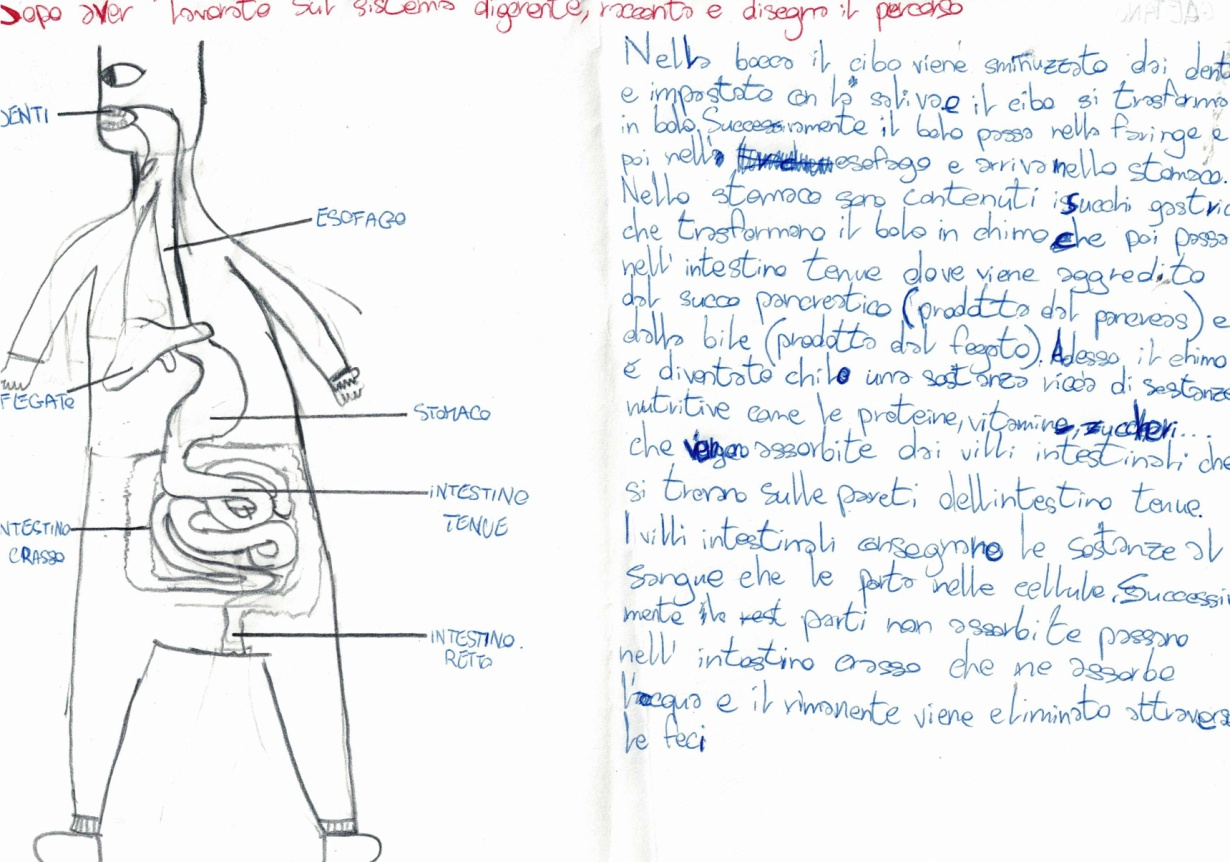 Dopo aver lavorato sul sistema digerente, racconto e disegno il percorso
DENTI
ESOFAGO
FEGATO
STOMACO
INTESTINO
TENUE
NTESTINO
CRASSO
INTESTINO.
RETTO
Nella bocca il cibo viene sminuzzato dai dent
e impastato con la saliva e il cibo si trasforma
in bolo. Successivamente il bolo passa nella faringe e
poi nell' esofago e arriva nello stomaco.
Nello stomaco sono contenuti i succhi gastric
che trasformano il bolo in chimo che poi passa
nell'intestino tenue dove viene aggredito
dal succo pancreatico (prodotto dal pancreas) e
dalla bile (prodotta dal fegato). Adesso il chimo
è diventato chilo una sostanza ricca di sostanze
nutritive come le proteine, vitamine, zuccheri...
che assorbite dai villi intestinali che
si trovano sulle pareti dell'intestino tenue.
I villi intestinali consegnano le sostanze al
sangue che le porta nelle cellule. Successiv
mente le parti non assorbite passano
nell' intestino crasso che ne assorbe
l'acqua e il rimanente viene eliminato attravers
le feci